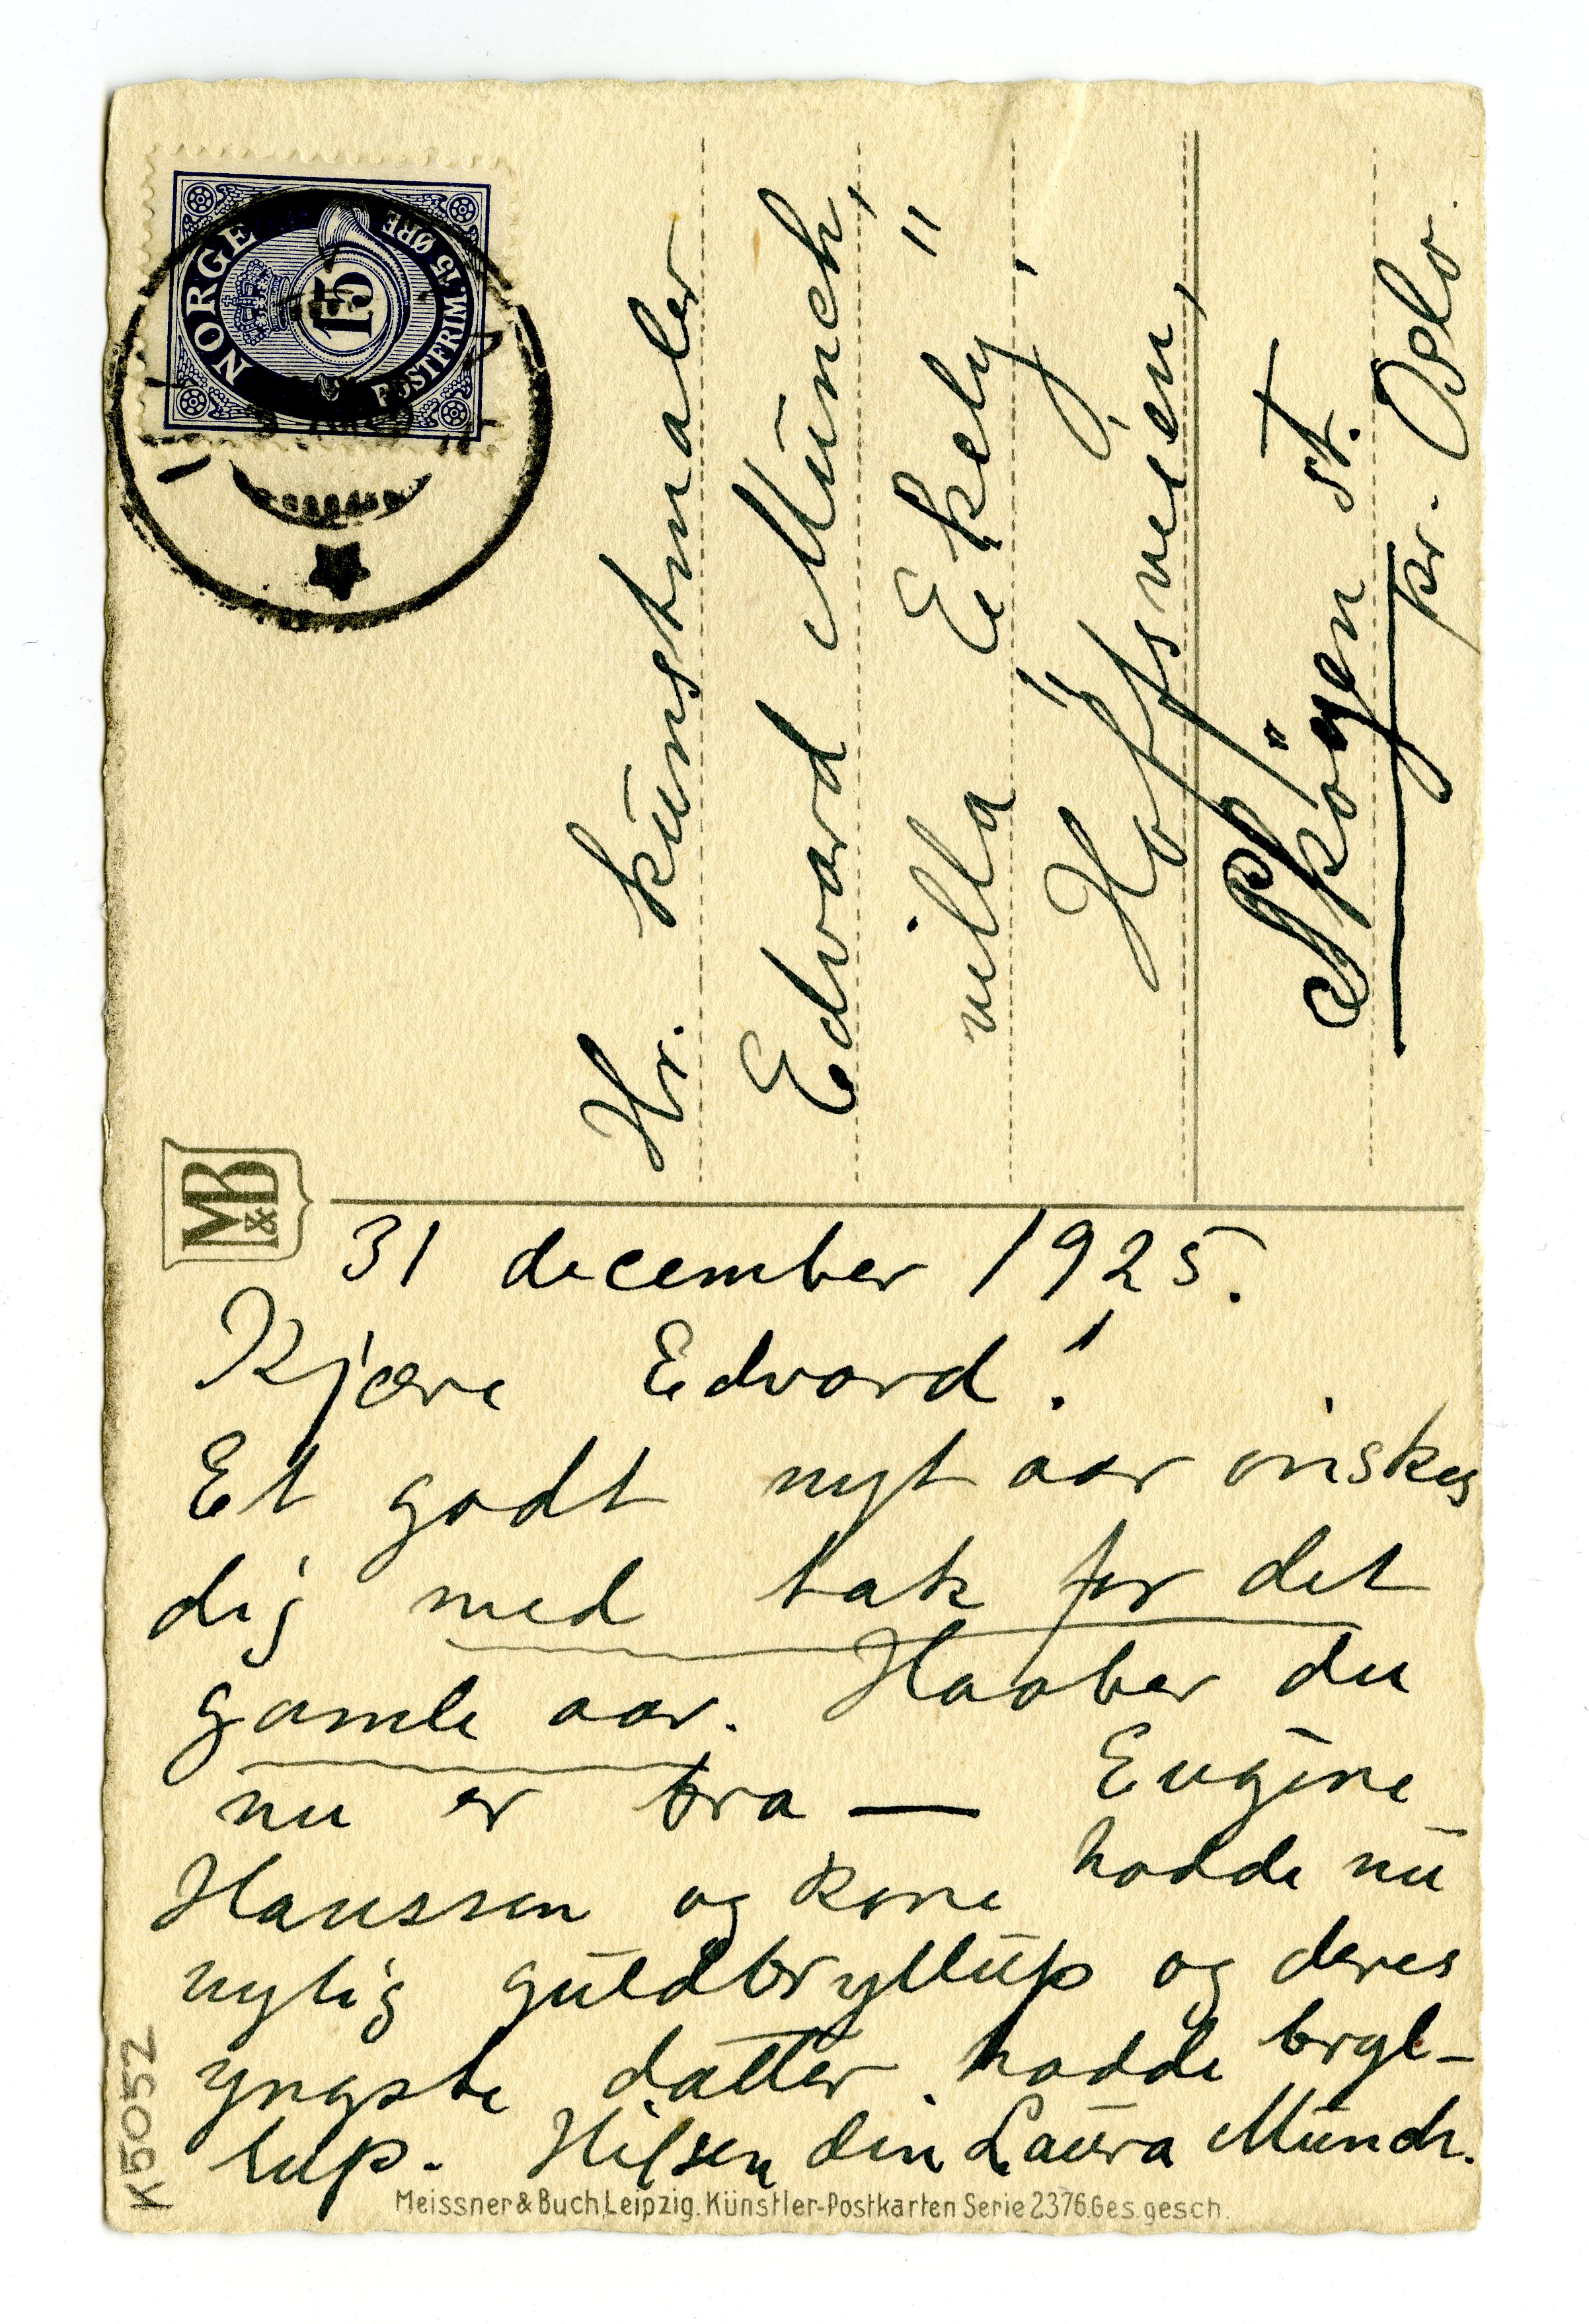 NORGE
POSTFRIM. 15 ØRE
15
Hr. kunstmaler
Edvard Munch,
villa "Ekely",
"Hoffsveien,
Skøyen st.
pr. Oslo.
M&B
31 december 1925.
Kjære Edvard!
Et godt nyt aar ønskes
dig med tak for det
gamle aar. Haaber du
nu er bra — Eugéne
Hanssen og kone hadde nu
nylig guldbryllup og deres
yngste datter hadde bryl-
lup. Hilsen din Laura Munch.
Meissner & Buch, Leipzig. Künstler-Postkarten Serie 2376. Ges. gesch.
K5052